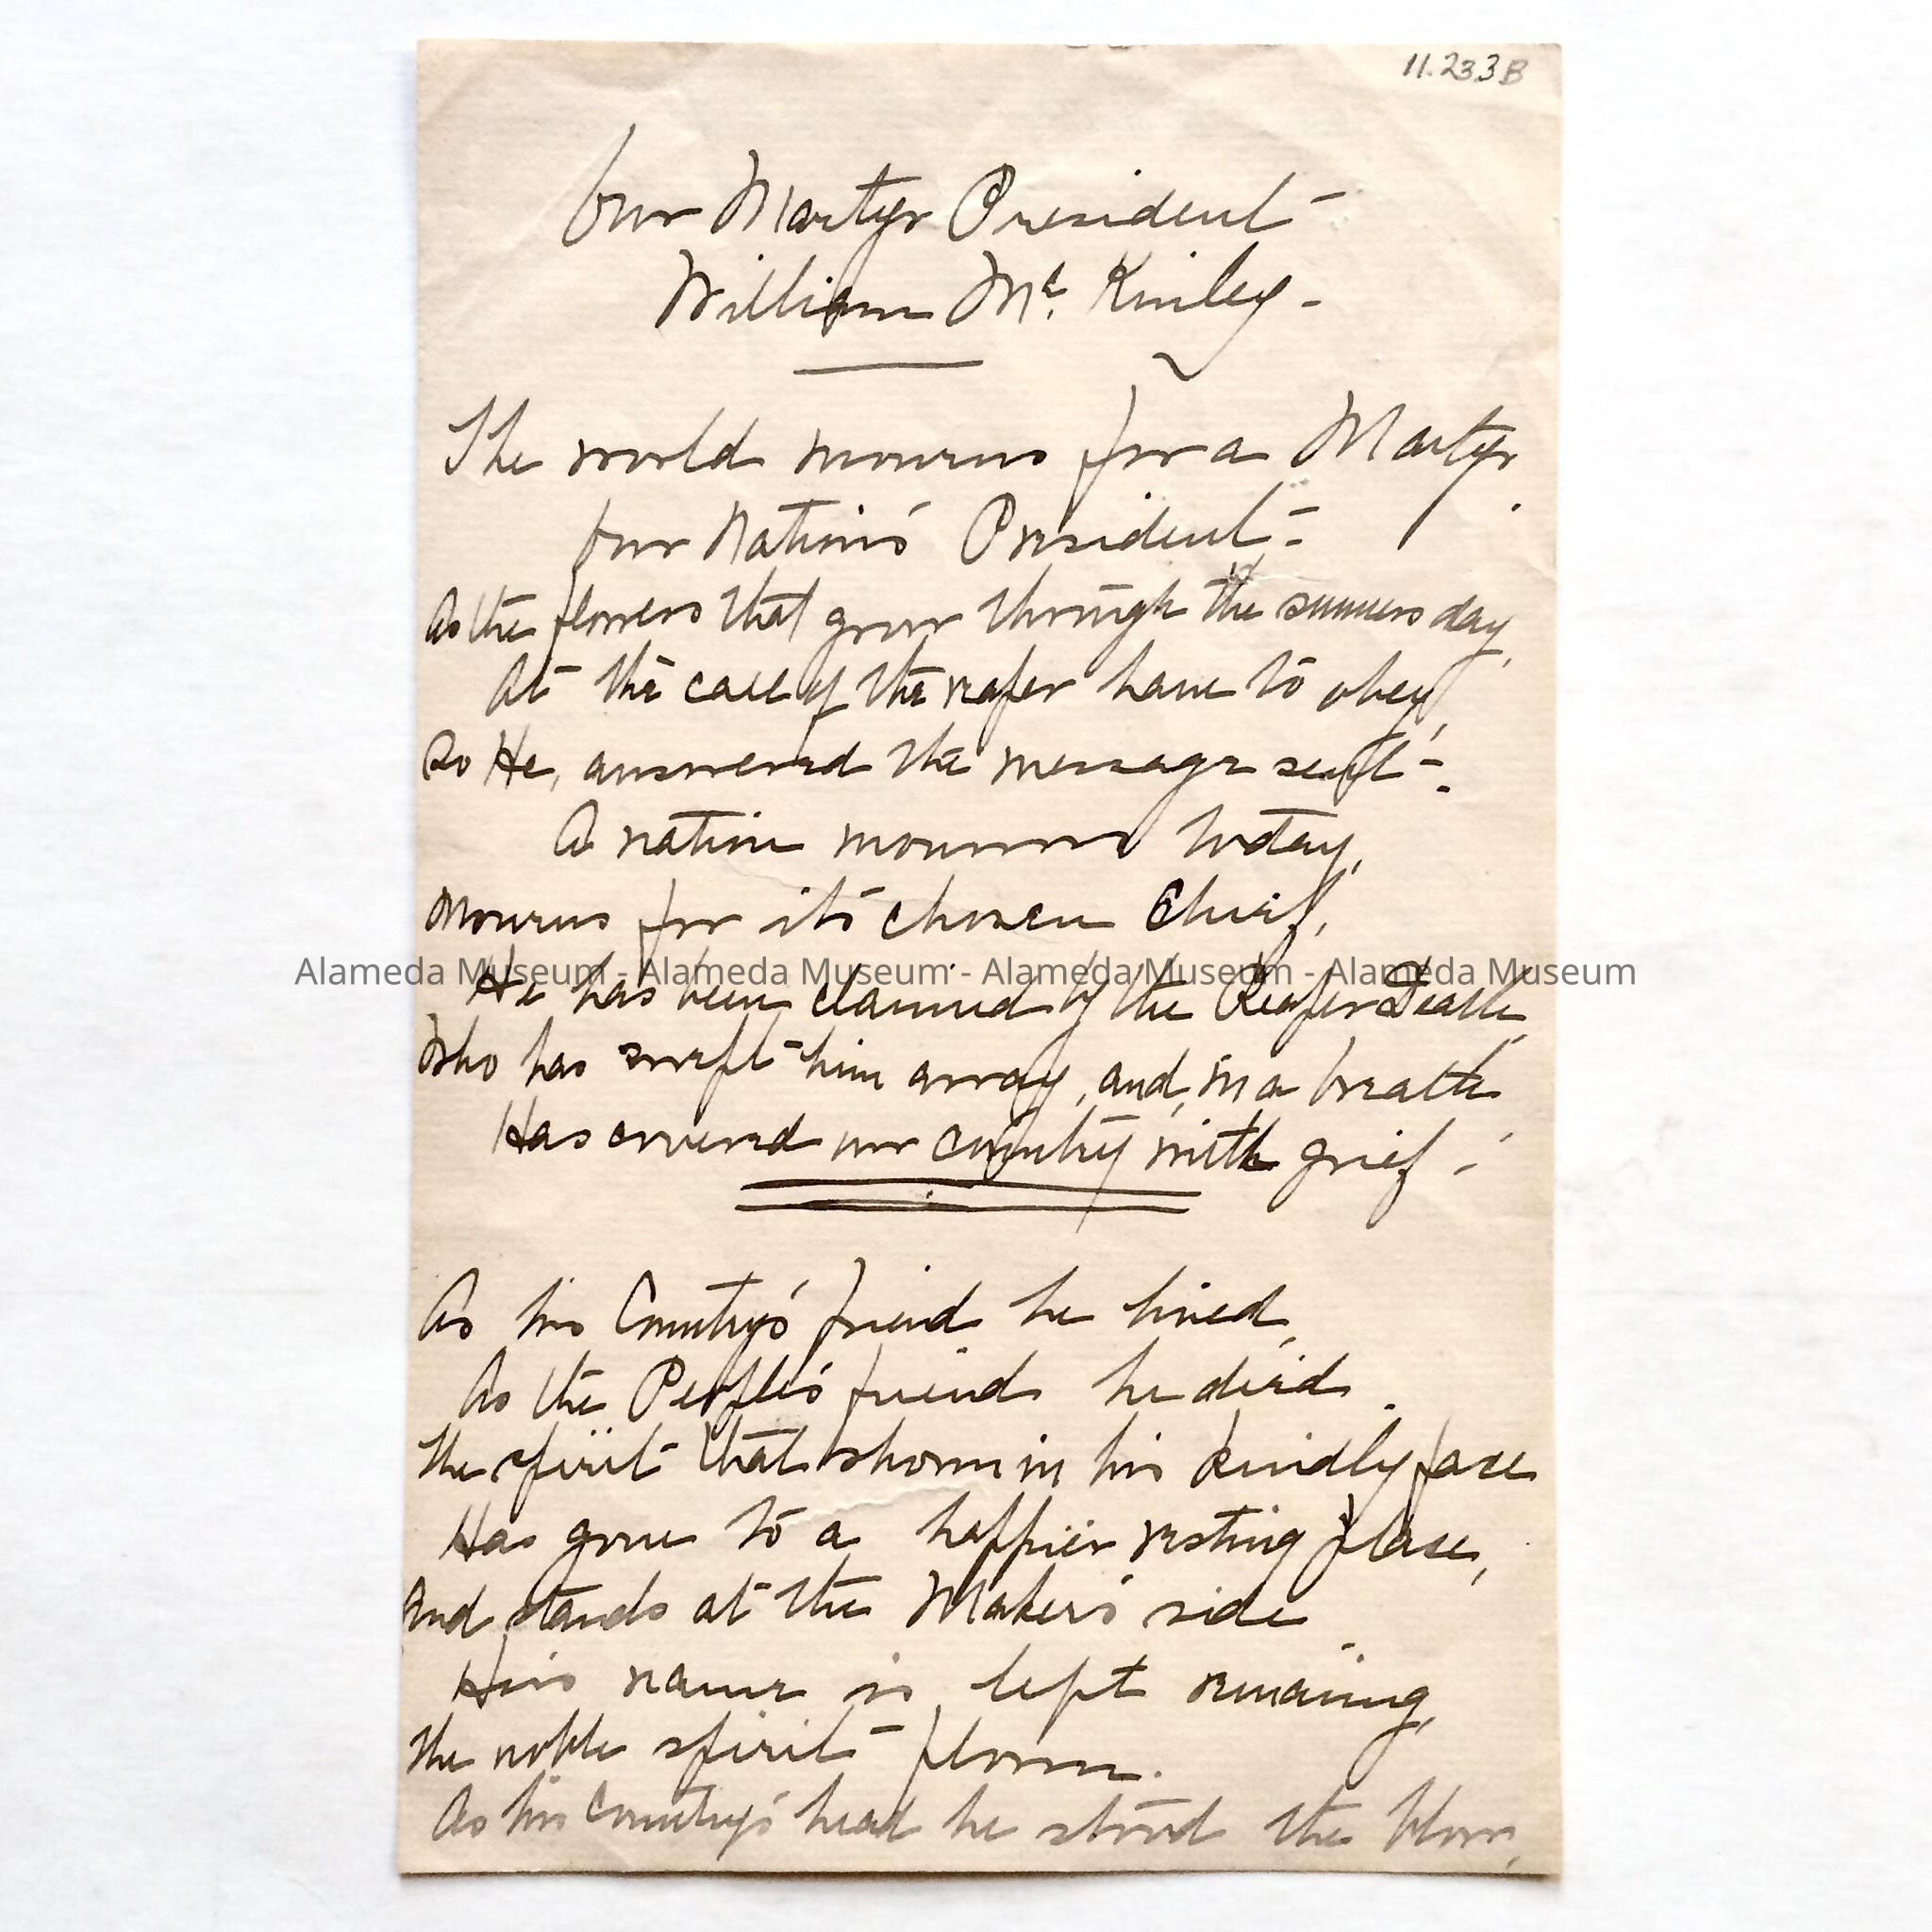 11.233B
Our Martyr President -
William Mc. Kinley -
The world mourns for a Martyr,
Our Nation's President -
As the flowers that grow through the summers day,
At the call of the reaper have to obey,
So He, answered the message sent -.
A nation mourns today,
Mourns for its chosen Chief,
Alameda Museum - Alameda Museum - Alameda Museum - Alameda Museum
He has been claimed by the Reaper Death,
Who has swept him away, and, in a breath
Has covered our country with grief -
As his Country's friend he lived,
As the People's friend he died.
The spirit that shown in his kindly face
Has gone to a happier resting place,
And stands at the Maker's side.
His name is left remaing,
The noble spirit flown.
As his Country's head he stood the blow,